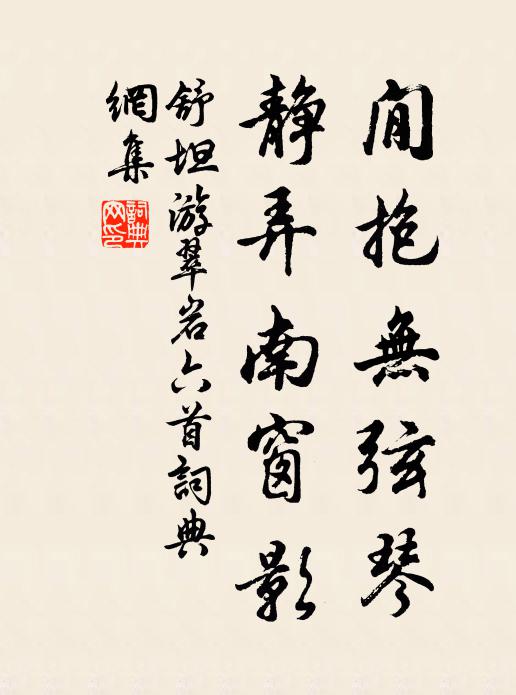 閒抱無弦琴
静弄南窗影
舒坦游翠岩六首詞典
網集
詞典網印